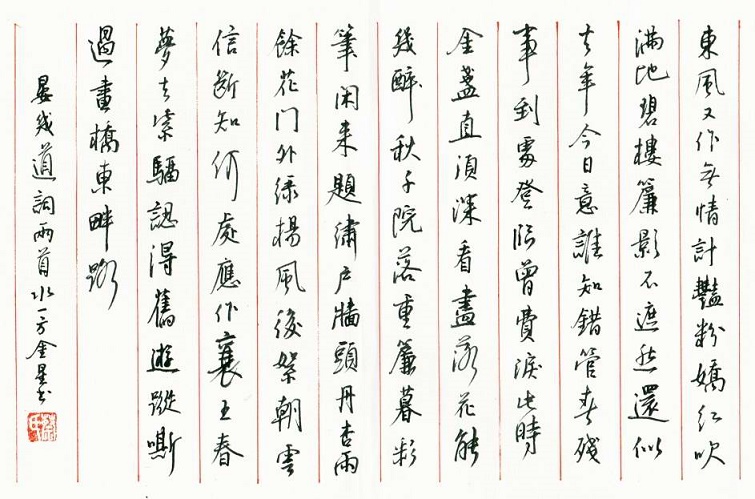 東風又作無情計艷粉嬌紅吹
滿地碧樓簾影不遮愁還似
去年今日意誰知錯管春殘
事到處登臨曾費淚此時
金盞直須深看盡落花能
幾醉秋千院落重簾暮彩
筆閑来題繡户牆頭丹杏雨
餘花门外綠楊風後絮朝雲
信斷知何處應作襄王春
夢去紫騮認得舊遊蹤嘶
過畫橋東畔路
晏幾道詞兩首水一方金星书